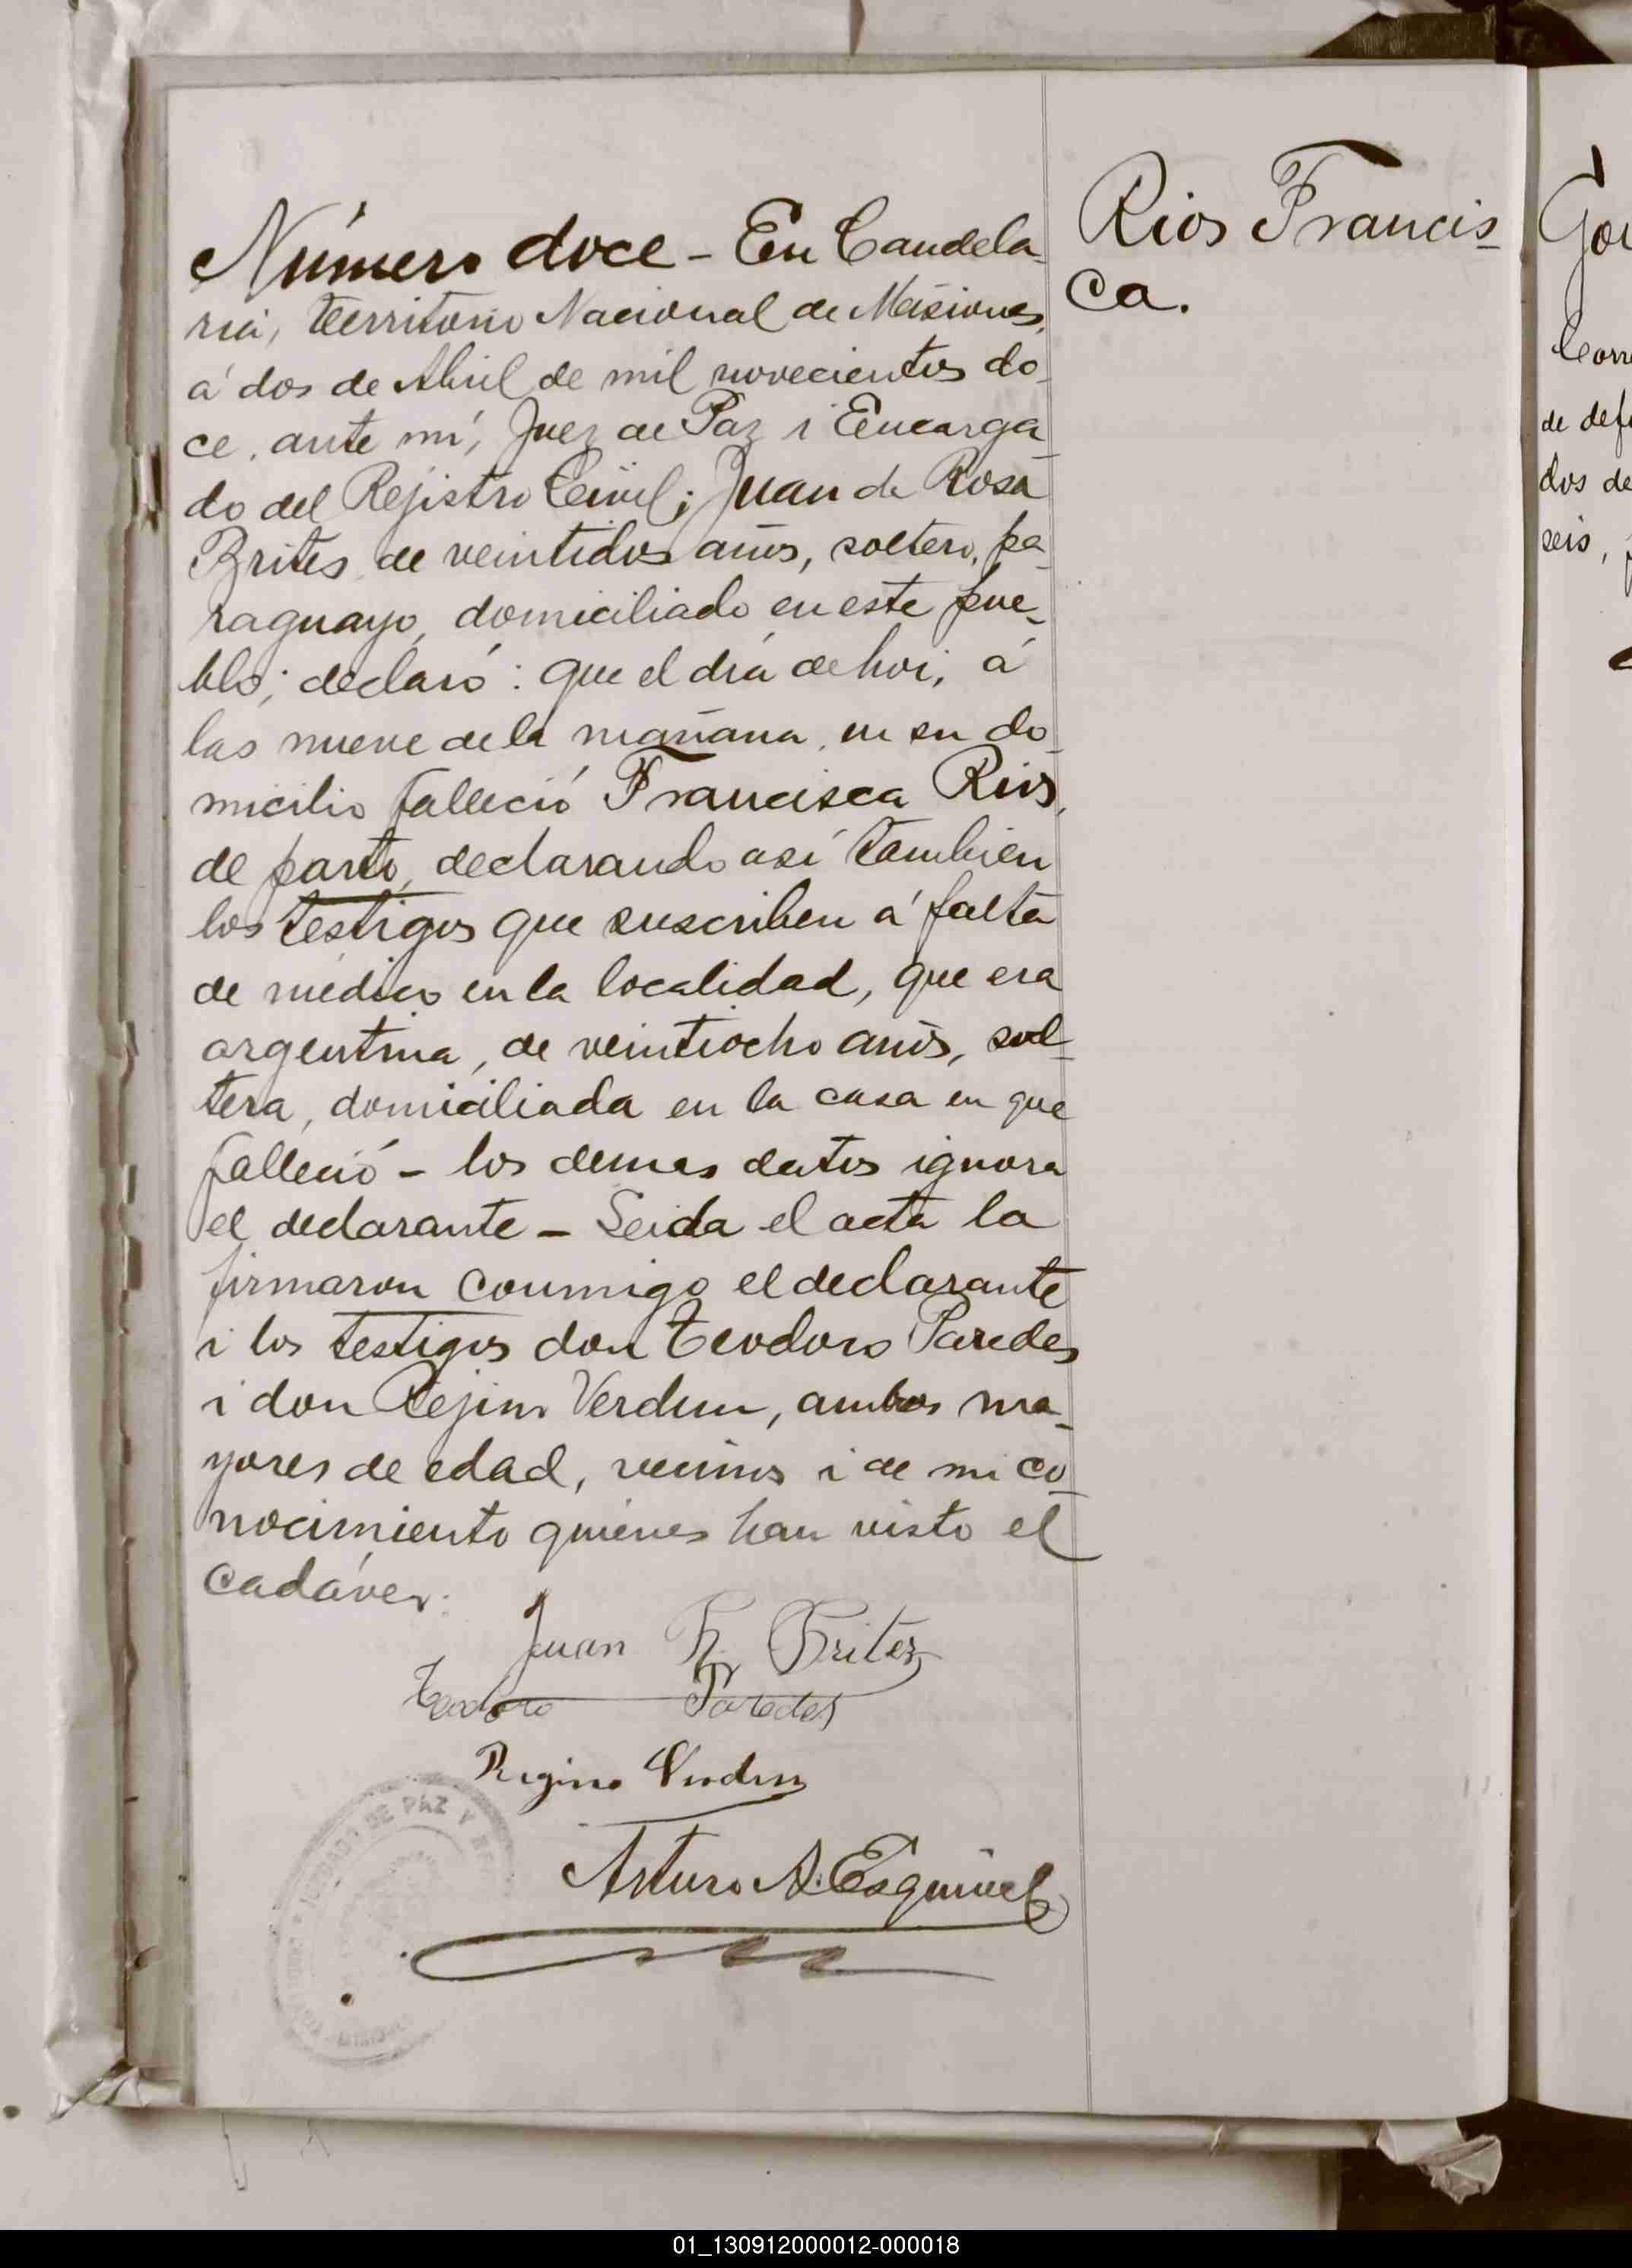 Rios Francis-
ca.
Número doce - En Candela-
ria, territorio Nacional de Misiones,
á dos de Abril de mil novecientos do-
ce, ante mí, Juez de Paz i Encarga-
do del Rejistro Civil; Juan de Rosa
Brites de veintidos años, soltero, pa-
raguayo, domiciliado en este pue-
blo; declaró: que el dia de hoi, á
las nueve de la mañana, en su do-
micilio falleció Francisca Rios,
de parto, declarando así tambien
los testigos que suscriben á falta
de médico en la localidad, que era
argentina, de veintiocho años, sol-
tera, domiciliada en la casa en que
falleció - los demas datos ignora
el declarante - Leida el acta la
firmaron conmigo el declarante
i los testigos don Teodoro Paredes
i don Rejino Verdun, ambos ma-
yores de edad, vecinos i de mi co-
nocimiento quiénes han visto el
cadáver.
Juan R. Britez
Teodoro Paredes
Regino Verdun
Arturo A. Esquivel
JUZGADO DE PAZ Y
Gor
Corr
de def
dos de
seis,
01_130912000012-000018